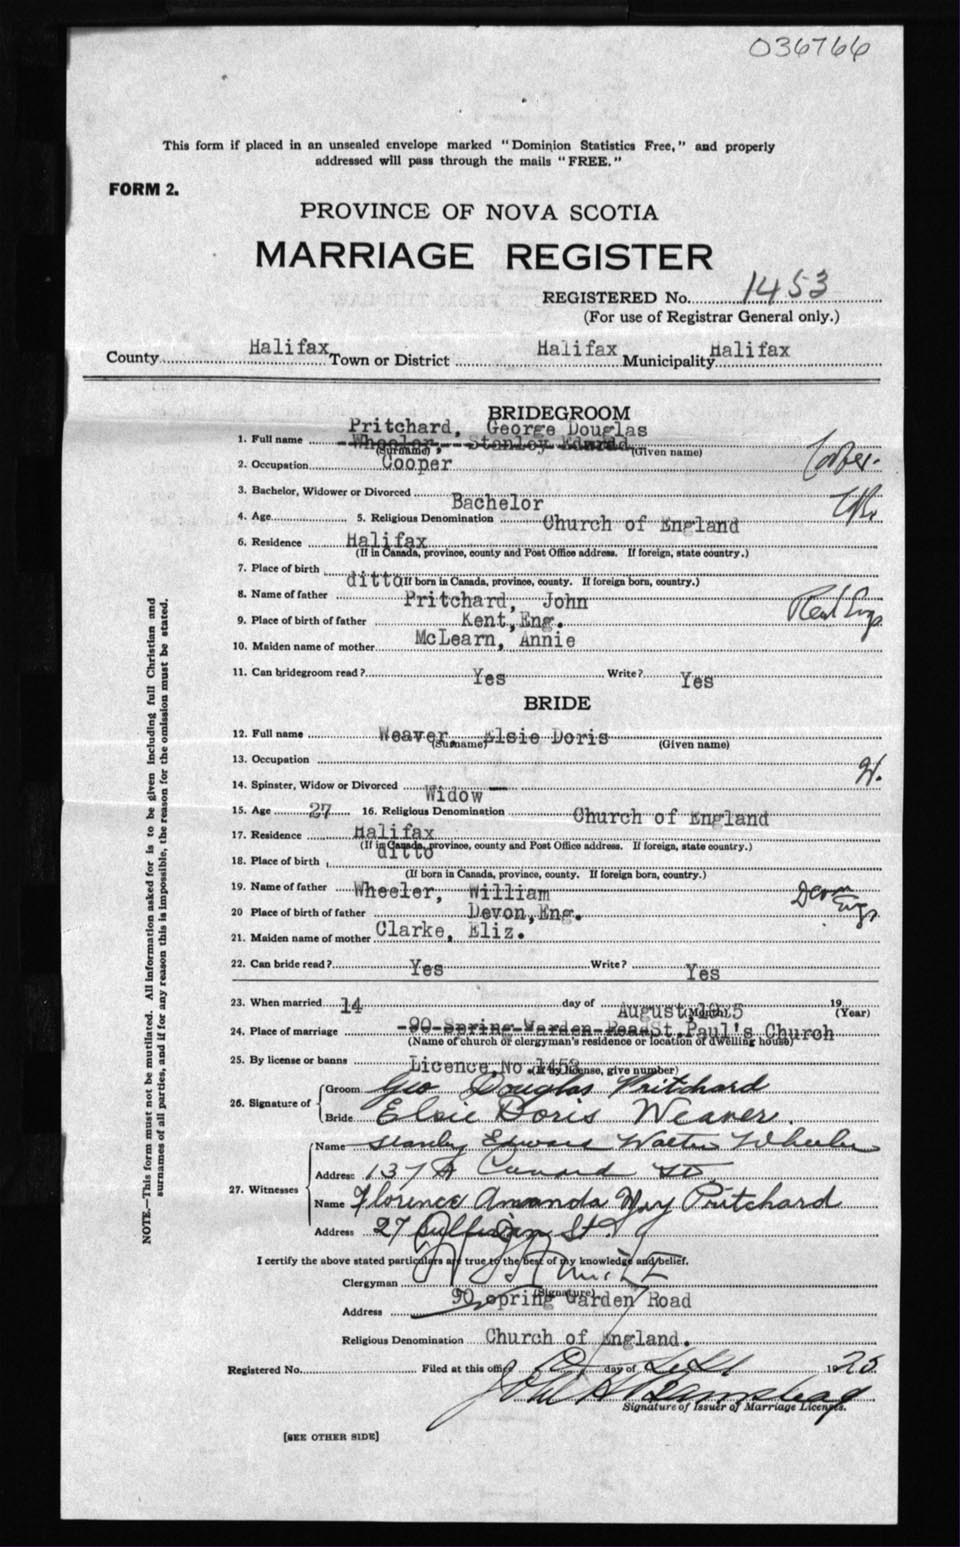 036766
This form if placed in an unsealed envelope marked "Dominion Statistics Free," and properly
addressed will pass through the mails "FREE."
FORM 2.
PROVINCE OF NOVA SCOTIA
MARRIAGE REGISTER
REGISTERED No. 1453
(For use of Registrar General only.)
County Halifax Town or District Halifax Municipality Halifax
BRIDEGROOM
Pritchard, George Douglas
1. Full name Wheeler, Stanley Edward
(Surname) (Given name)
2. Occupation Cooper
3. Bachelor, Widower or Divorced Bachelor
4. Age 5. Religious Denomination Church of England
6. Residence Halifax
(If in Canada, province, county and Post Office address. If foreign, state country.)
7. Place of birth ditto
If born in Canada, province, county. If foreign born, country.)
8. Name of father Pritchard, John
9. Place of birth of father Kent, Eng.
10. Maiden name of mother McLearn, Annie
11. Can bridegroom read? Yes Write? Yes
BRIDE
12. Full name Weaver Elsie Doris
(Surname) (Given name)
13. Occupation
14. Spinster, Widow or Divorced Widow
15. Age 27 16. Religious Denomination Church of England
17. Residence Halifax
(If in Canada, province, county and Post Office address. If foreign, state country.)
18. Place of birth ditto
(If born in Canada, province, county. If foreign born, country.)
19. Name of father Wheeler, William
20 Place of birth of father Devon, Eng.
21. Maiden name of mother Clarke, Eliz.
22. Can bride read? Yes Write? Yes
23. When married 14 day of August, 1925 19
(Month) (Year)
24. Place of marriage 90 Spring Warden Road St. Paul's Church
(Name of church or clergyman's residence or location of dwelling house)
25. By license or banns Licence No. 1453
(If by license, give number)
26. Signature of Groom Geo Douglas Pritchard
Bride Elsie Doris Weaver.
27. Witnesses Name Stanley Edward Walter Wheeler
Address 137 A Cunard St
Name Florence Amanda May Pritchard
Address 27 St
I certify the above stated particulars are true to the best of my knowledge and belief.
Clergyman
(Signature)
Address 90 Spring Garden Road
Religious Denomination Church of England.
Registered No. Filed at this office day of 1925
Signature of Issuer of Marriage Licenses.
[SEE OTHER SIDE]
NOTE.—This form must not be mutilated. All information asked for is to be given including full Christian and
surnames of all parties, and if for any reason this is impossible, the reason for the omission must be stated.